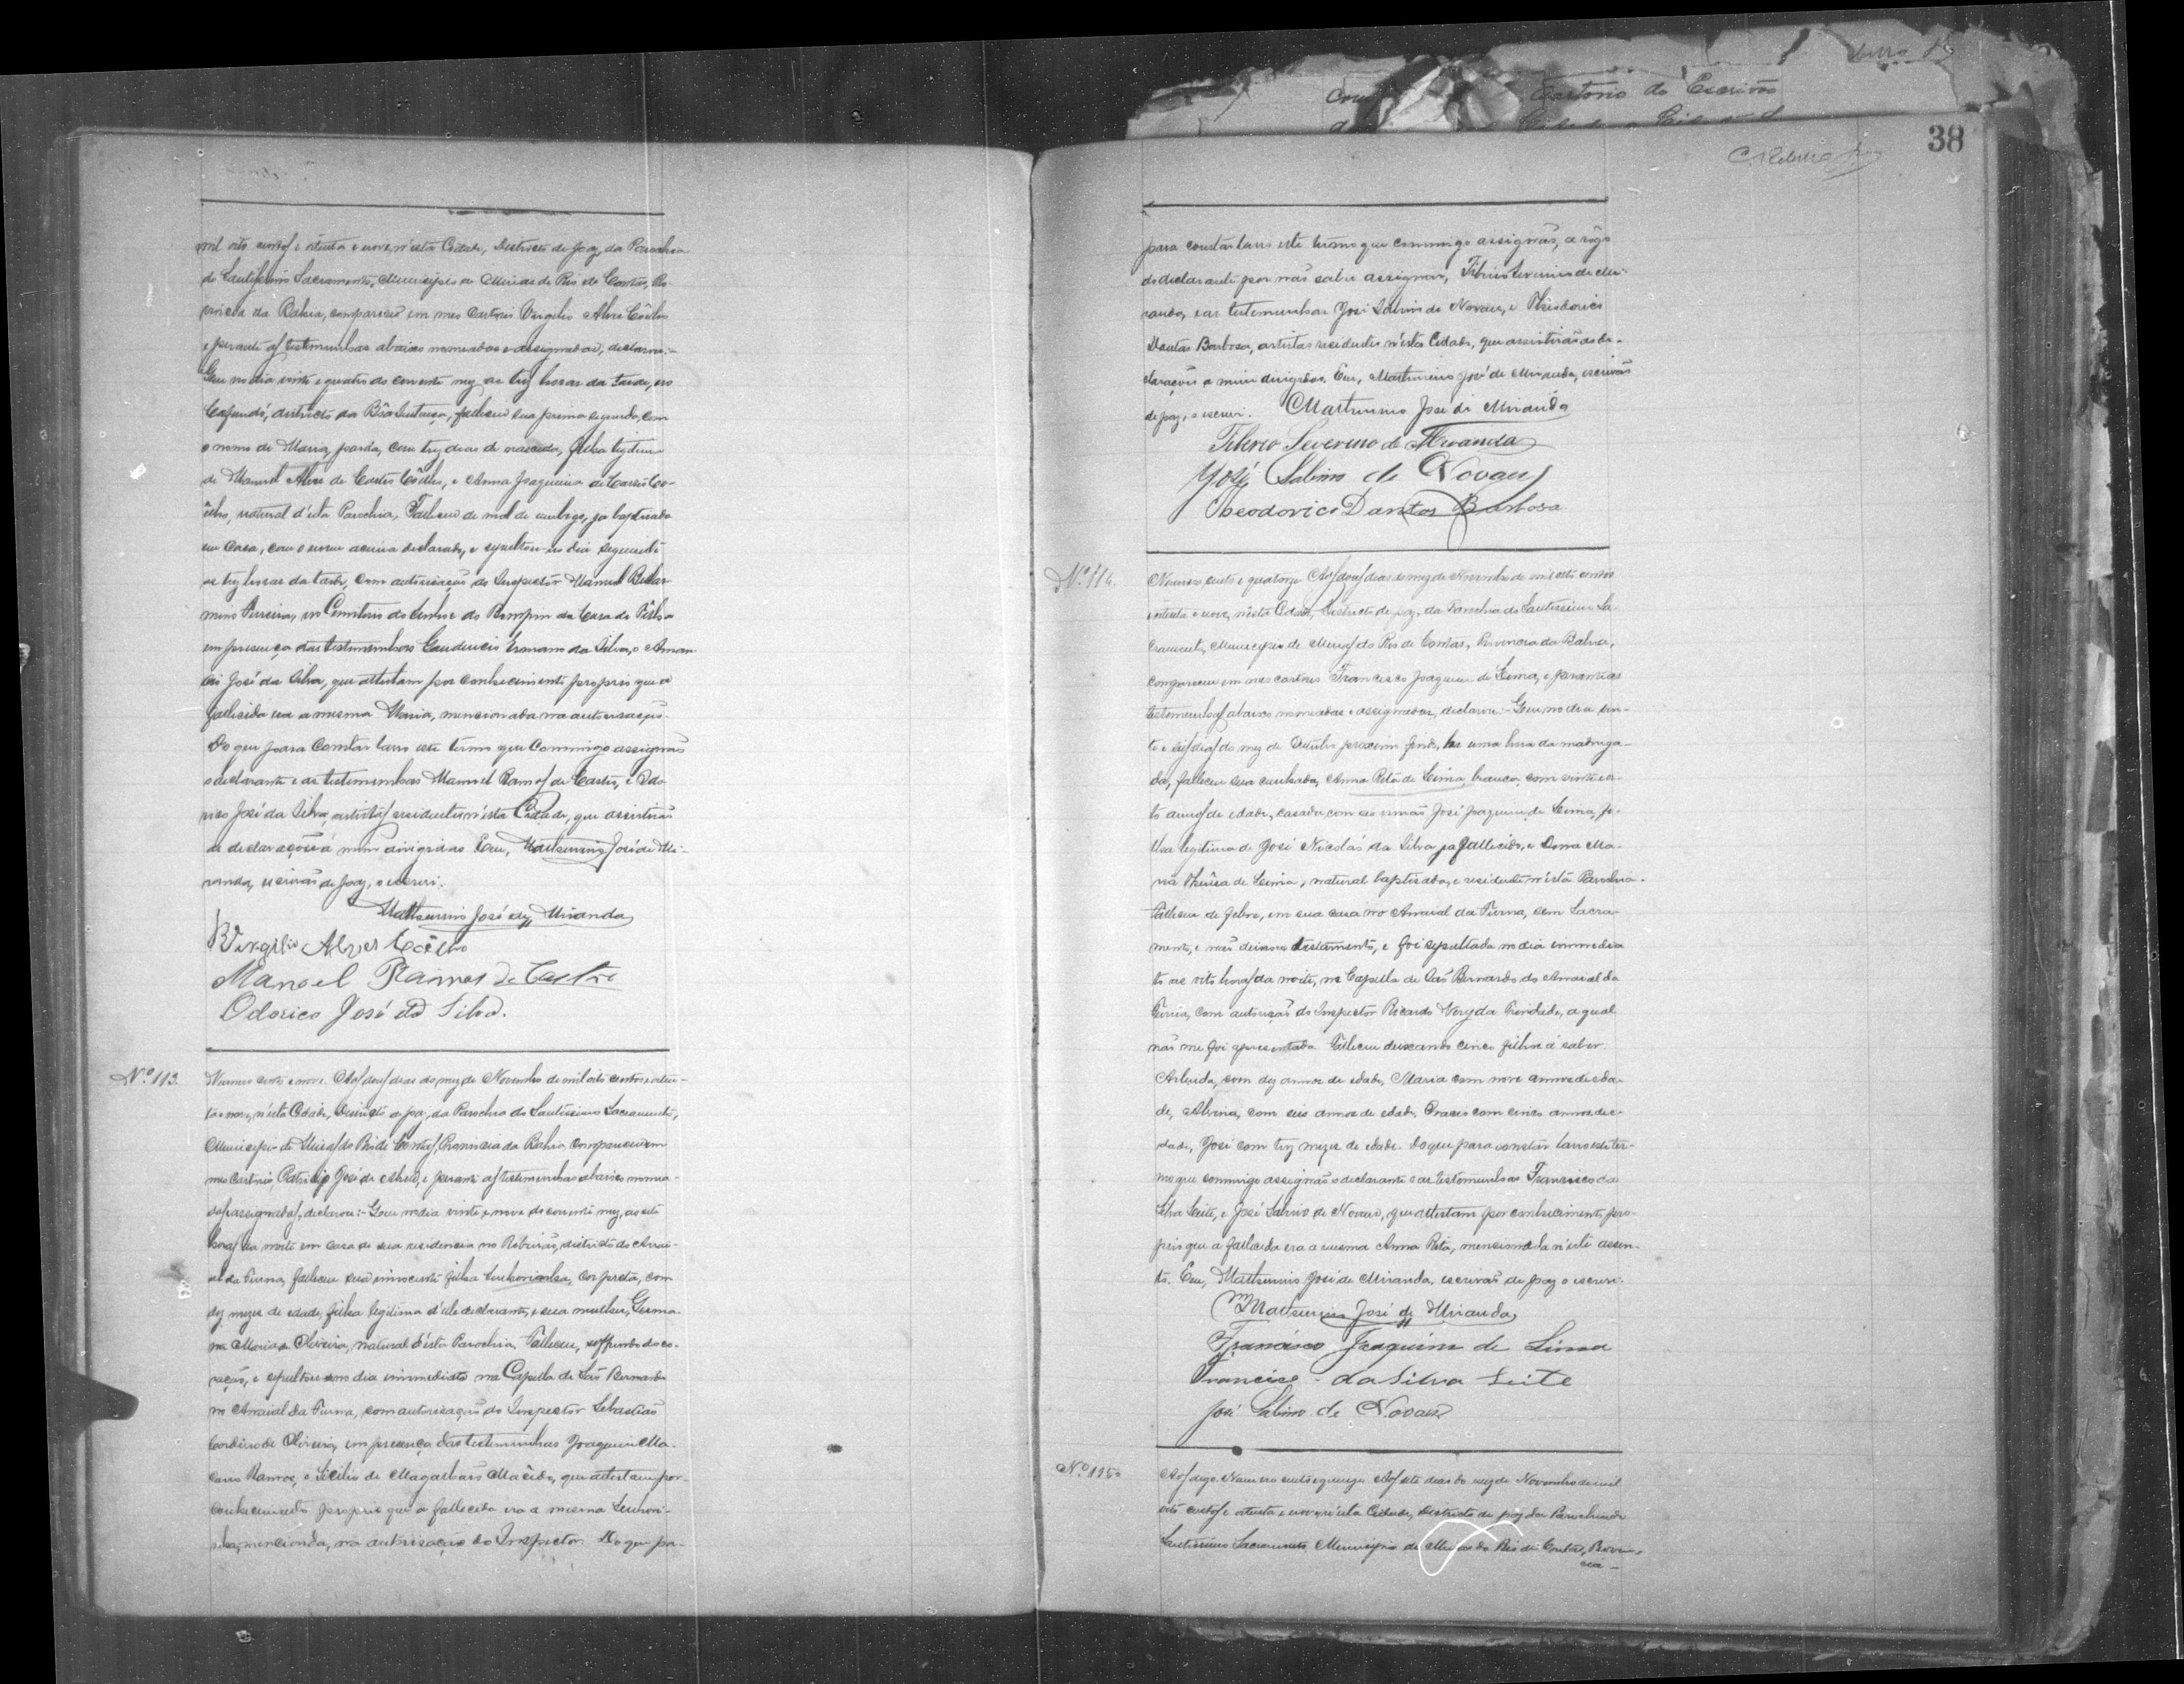 mil oito centos e oitenta e nove, n'esta Cidade, Districto de Paz, da Parochia
do Santissimo Sacramento, Municipio de Minas do Rio de Contas, Pro-
vincia da Bahia, compareceu em meu Cartorio Virgilio Alves Coêlho
e perante as testemunhas abaixo nomeadas e assignadas, declarou:-
Que no dia vinte e quatro do corrente mez, as trez horas da tarde, no
districto da Bôa Sentença, falleceu sua prima segunda, com
o nome de Maria, parda, com trez dias de nascida, filha legitima
de Manoel Alves de Castro Coêlho, e Anna Joaquina de Castro Co-
êlho, natural d'esta Parochia, Falleceu de mal de umbigo, ja baptisada
em Casa, com o nome acima declarado, e sepultou-se no dia seguinte
as trez horas da tarde, com autorisação do Inspector Manoel Bellar-
mino Ferreira, no Cemiterio do Senhor do Bomfim da Casa de Telha
em presença das testemunhas Gaudencio da Silva, e Aman-
cio José da Silva, que attestam por conhecimento proprio que a
fallecida era a mesma Maria, mencionada na autorisação.
Do que para constar lavro este termo que commigo assignão
o declarante e as testemunhas Manoel Ramos de Castro, e Odo-
rico José da Silva, artistas residentes n'esta Cidade, que assistirão
as declarações á mim dirigidas. Eu, Mathurino José de Mi-
randa, escrivão de paz, o escrevi.
Mathurino José de Miranda
Virgilio Alves Coêlho
Manoel Ramos de Castro
Odorico José da Silva.
Nº 113. Numero cento e nove. Aos dous dias do mez de Novembro de mil oito centos e oiten-
ta e nove, n'esta Cidade, Districto de paz, da Parochia do Santissimo Sacramento,
Municipio de Minas do Rio de Contas, Provincia da Bahia, compareceu em
meu Cartorio, José de Abreu, e perante as testemunhas abaixo nomea-
das e assignadas, declarou:- Que no dia vinte e nove do corrente mez, as sete
horas da noite em casa de sua residencia no Ribeirão, districto do Arrai-
al da Furna, falleceu sua innocente filha Senhorinha, cor preta, com
dez mezes de edade, filha legitima d'elle declarante, e sua mulher, Germa-
na Maria de Oliveira, natural d'esta Parochia, Falleceu, soffrendo do co-
ração, e sepultou-se no dia immediato na Capella de São Bernardo
no Arraial da Furna, com autorisação do Inspector Sebastião
Cordeiro de Oliveira, em presença das testemunhas Joaquim Ma-
Ramos, e Sicilio de Magalhães Macêdo, que attestam por
conhecimento proprio que a fallecida era a mesma Senhori-
nha, mencionda, na autorisação do Inspector. Do que pa-
Cartorio do Escrivão
38
C. Ribeiro
para constar lavro este termo que commigo assignão, a rogo
do declarante por não saber assignar, Tiberio Severino de Mi-
randa, e as testemunhas José Sabino de Novaes, e Theodorico
Dantas Barbosa, artistas residentes n'esta Cidade, que assistirão as de-
clarações a mim dirigidas. Eu, Mathurino José de Miranda, escrivão
de paz, o escrevi. Mathurino José de Miranda
Tiberio Severino de Miranda
José Sabino de Novaes
Theodorico Dantas Barbosa
Nº 114. Numero cento e quatorze. Aos dous dias do mez de Novembro de mil oito centos
e oitenta e nove, n'esta Cidade, Districto de paz, da Parochia do Santissimo Sa-
cramento, Municipio de Minas do Rio de Contas, Provincia da Bahia,
compareceu em meu cartorio Francisco Joaquim de Lima, e perante as
testemunhas abaixo nomeadas e assignadas, declarou:- Que no dia vin-
te e seis dias do mez de Outubro proximo findo, a uma hora da madruga-
da, falleceu sua cunhada, Anna Rita de Lima, branca, com vinte e oi-
to annos de edade, casada com seo irmão José Joaquim de Lima, fi-
lha legitima de José Nicolás da Silva ja fallecido, e Dona Ma-
ria Thereza de Lima, natural baptisada, e residente n'esta Parochia.
Falleceu de febre, em sua casa no Arraial da Furna, sem Sacra-
mento, e não deixou testamento, e foi sepultada no dia immedia
to as oito horas da noite, na Capella de São Bernardo do Arraial da
Furna, com autorisação do Inspector Ricardo da Trindade, a qual
não me foi apresentada. Falleceu deixando cinco filhos á saber:
Arlinda, com dez annos de edade, Maria com nove annos de eda-
de, Alvina, com seis annos de edade, com cinco annos de e-
dade, José com trez mezes de edade. Do que para constar lavro este ter-
mo que commigo assignão o declarante e as testemunhas Francisco da
Silva Leite, e José Sabino de Novaes, que attestam por conhecimento pro-
prio que a fallecida era a mesma Anna Rita, mencionada n'este assen-
to. Eu, Mathurino José de Miranda, escrivão de paz o escrevi.
Mathurino José de Miranda
Francisco Joaquim de Lima
Francisco da Silva Leite
José Sabino de Novaes
Nº 115. Aos digo. Numero cento e quinze. Aos sete dias do mez de Novembro de mil
oito centos e oitenta e nove, n'esta Cidade, Districto de paz da Parochia do
Santissimo Sacramento, Municipio de Minas do Rio de Contas, Provin-
cia-